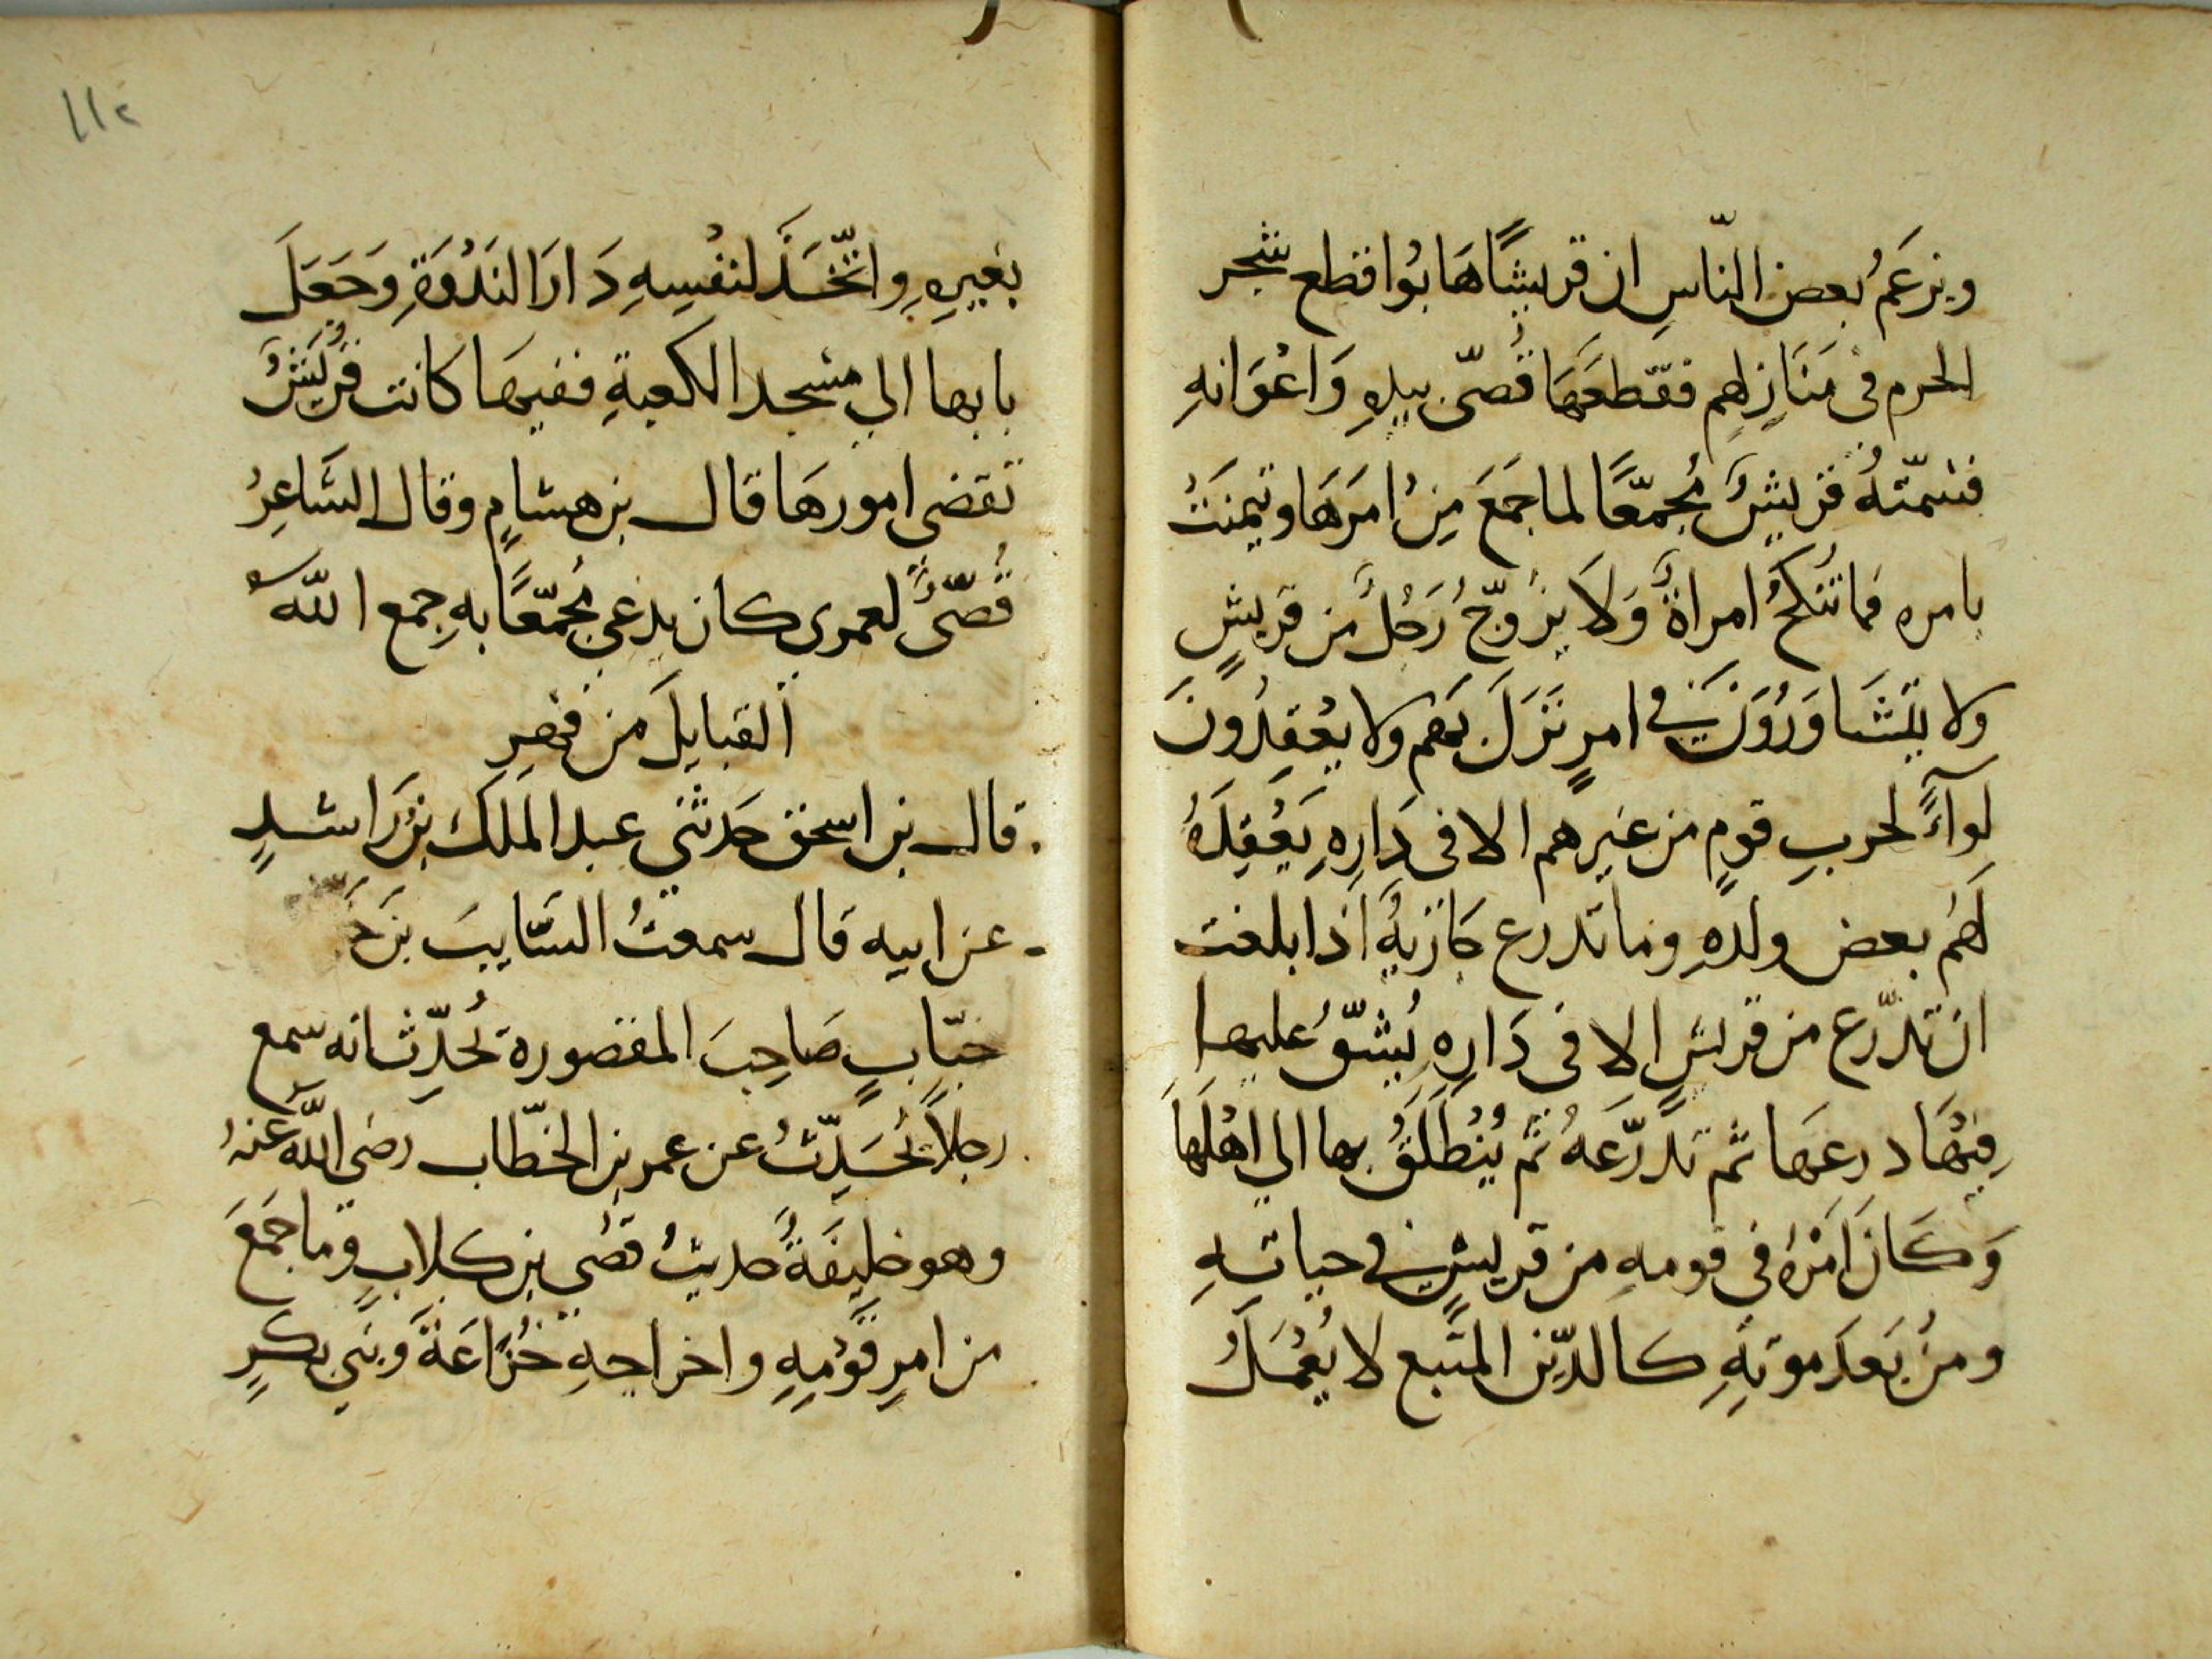 ويزعَمُ بعض النّاسِ ان قريشًا هَابُوا قطع شجر
الحرم فى مَنَازِلهم فقطعَهَا قُصّى بيدِهِ وَاعْوَانهِ
فسَمّتهُ قريشٌ مُجمّعًا لما جَمَعَ مِنْ امرَهَا وتيمنَتْ
بامره فما تُنكحُ امراةٌ وَلَا يزوّجُ رَجُلٌ من قريشٍ
ولا يتشَاوَرُوَن في امرٍ نَزَلَ بهم ولا يعْقِدُونَ
لوآءً لحربِ قومٍ من غيرهم الا فى دَارِهِ يَعْقِدَهُ
لَهُم بعض ولدهِ وما تدرع جَاريةٌ اذا بلغت
ان تدّرع من قريشٍ الا فى دَارِهِ يُشَقّ عليها
فِيْهَا درعَهَا ثم تدرّعَهُ ثم يُنْطَلَقُ بها الي اهْلهَا
وَكَانَ امْرُه فى قومهِ من قريشٍ في حياتهِ
ومنْ بَعدِ موتهِ كالدّين المتّبع لا يُعْمَلُ
۱۱۲
بغيرِهِ واتّخَذَ لنفْسِهِ دَارَ النَدْوَةِ وَجَعَلَ
بابها الي مسْجد الكعبةِ ففيهَا كانت قُرَيْشٌ
تقضي امورهَا قال بن هشامٍ وقال الشَّاعِرُ
قُصّىٌ لعمري كان يدعى مُجمّعًا بهِ جمع اللّه
القبايلَ من فهرِ
قال بن اسحق حَدثنى عبد الملَك بْن رَاشدٍ
عن ابيه قال سمعتُ السَّايبَ بْنَ
خبّابٍ صَاحِبَ المقصورة يُحدِّث انه سمع
رجلاً يُحَدِّثُ عن عمر بْن الخطّاب رضى اللّه عنهُ
وهو خليفَةٌ حديثُ قصُي بن كلابٍ وما جَمَعَ
من امرِ قوْمِهِ واخراجهِ خُزَاعَةَ وَبني بكرٍ